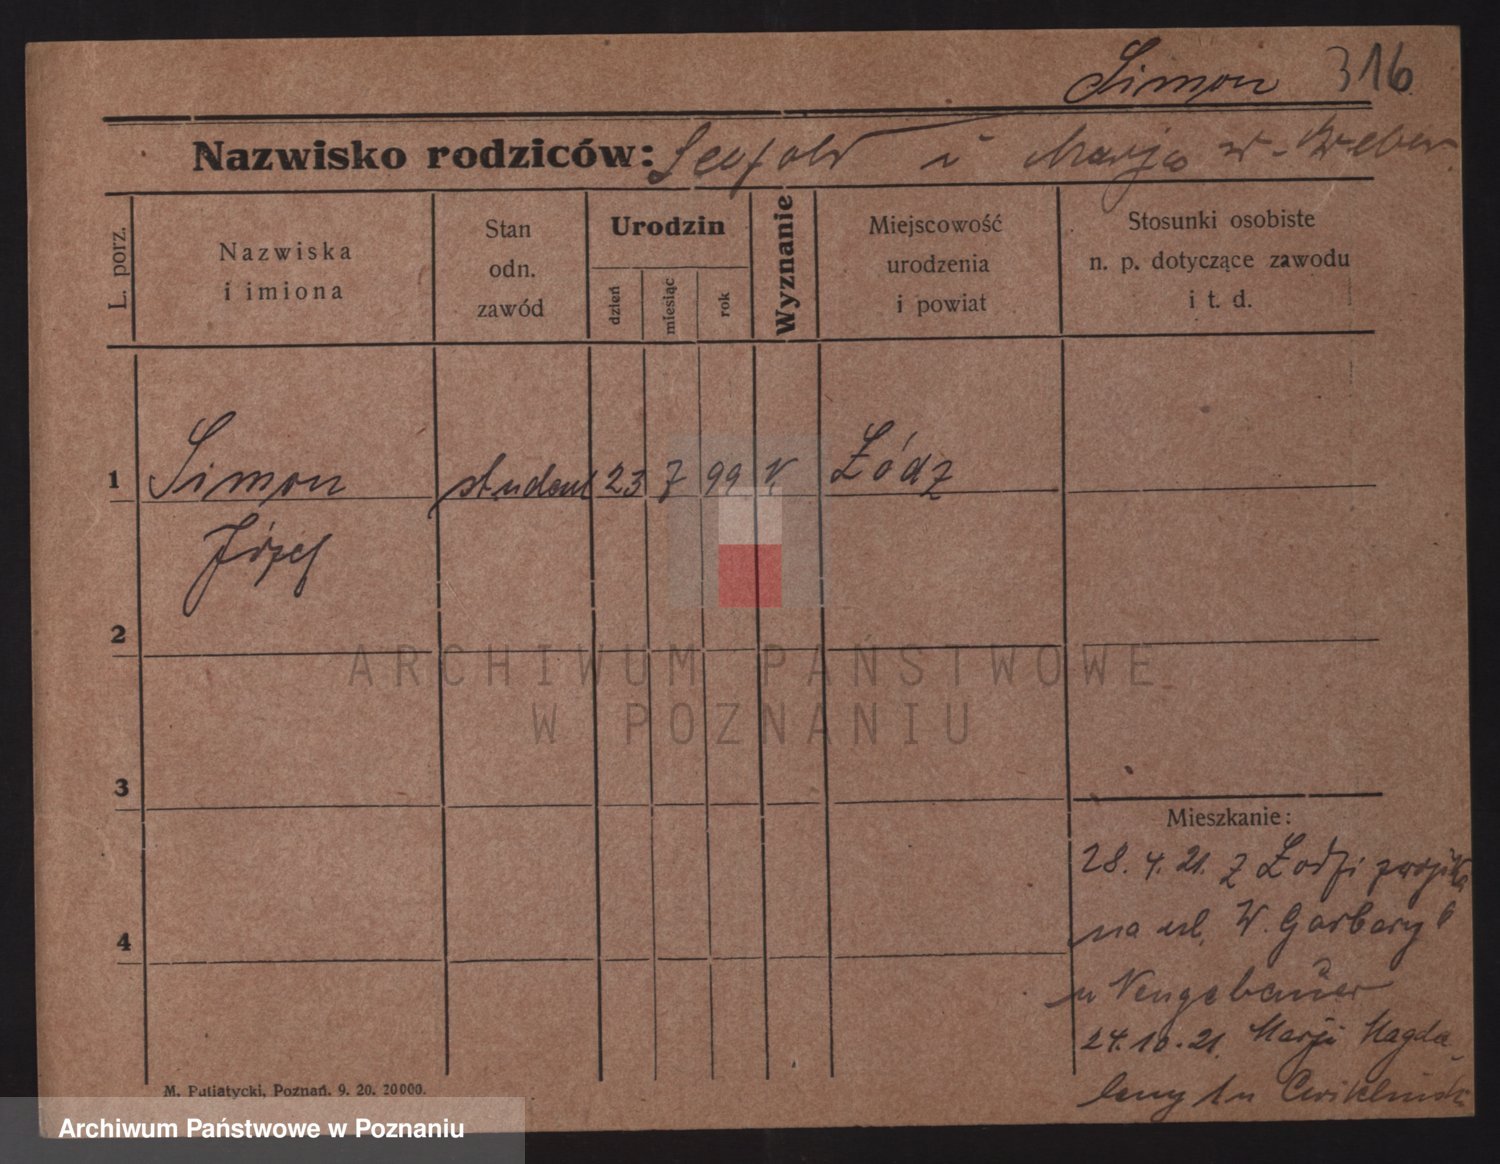 Simon 316
Nazwisko rodziców: i Marja
L. porz.
Nazwiska
i imiona
Stan
odn.
zawód
Urodzin
dzień
miesiąc
rok
Wyznanie
Miejscowość
urodzenia
i powiat
Stosunki osobiste
n. p. dotyczące zawodu
i t. d.
1 Simon student 23 7 99 Łódz
Józef
2
3
4
ARCHIWUM PAŃSTWOWE
W POZNANIU
Mieszkanie:
28. 4. 21. z Łodzi
na ul. W. Garbary 6
u Neugebauer
24. 10. 21. Marji Magda-
leny 1 u
M. Putiatycki, Poznań. 9. 20. 20000.
Archiwum Państwowe w Poznaniu